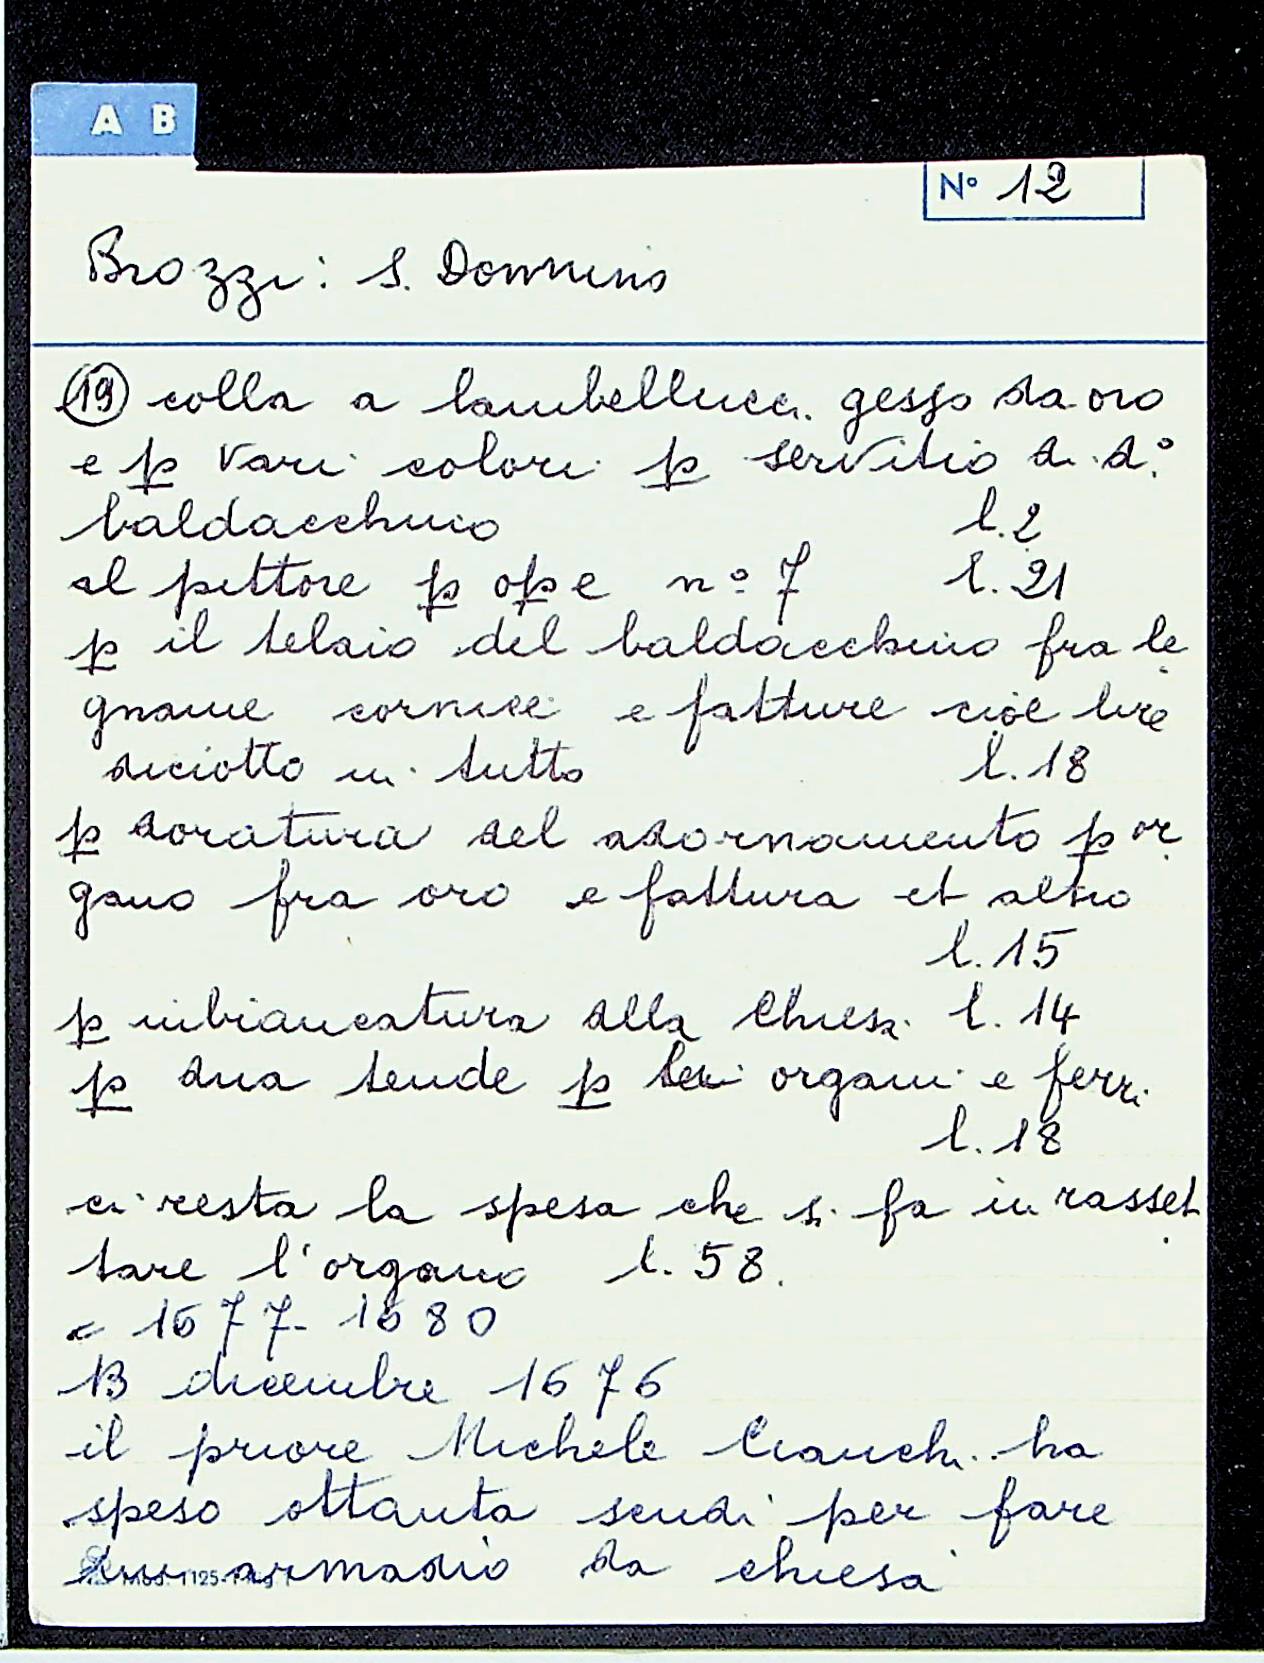 A B
Nº 12
Brozzi: S. Donnino
(19) colla a lambellucci gesso da oro
e p vari colori p servitio di d.º
baldacchino l. 2
al pittore p op e nº 7 l. 21
p il telaio del baldacchino fra le
gname cornice e fatture cioè lire
diciotto in tutto l. 18
p doratura del adornamento p or
gano fra oro e fattura et altro
l. 15
p inbiancatura alla Chiesa l. 14
p dua tende p organi e ferri
l. 18
ci resta la spesa che si fa in rasset
tare l'organo l. 58.
c 1677-1680
13 dicembre 1676
il priore Michele Cianchi ha
speso ottanta scudi per fare
un armadio da chiesa
Mod. 1125-